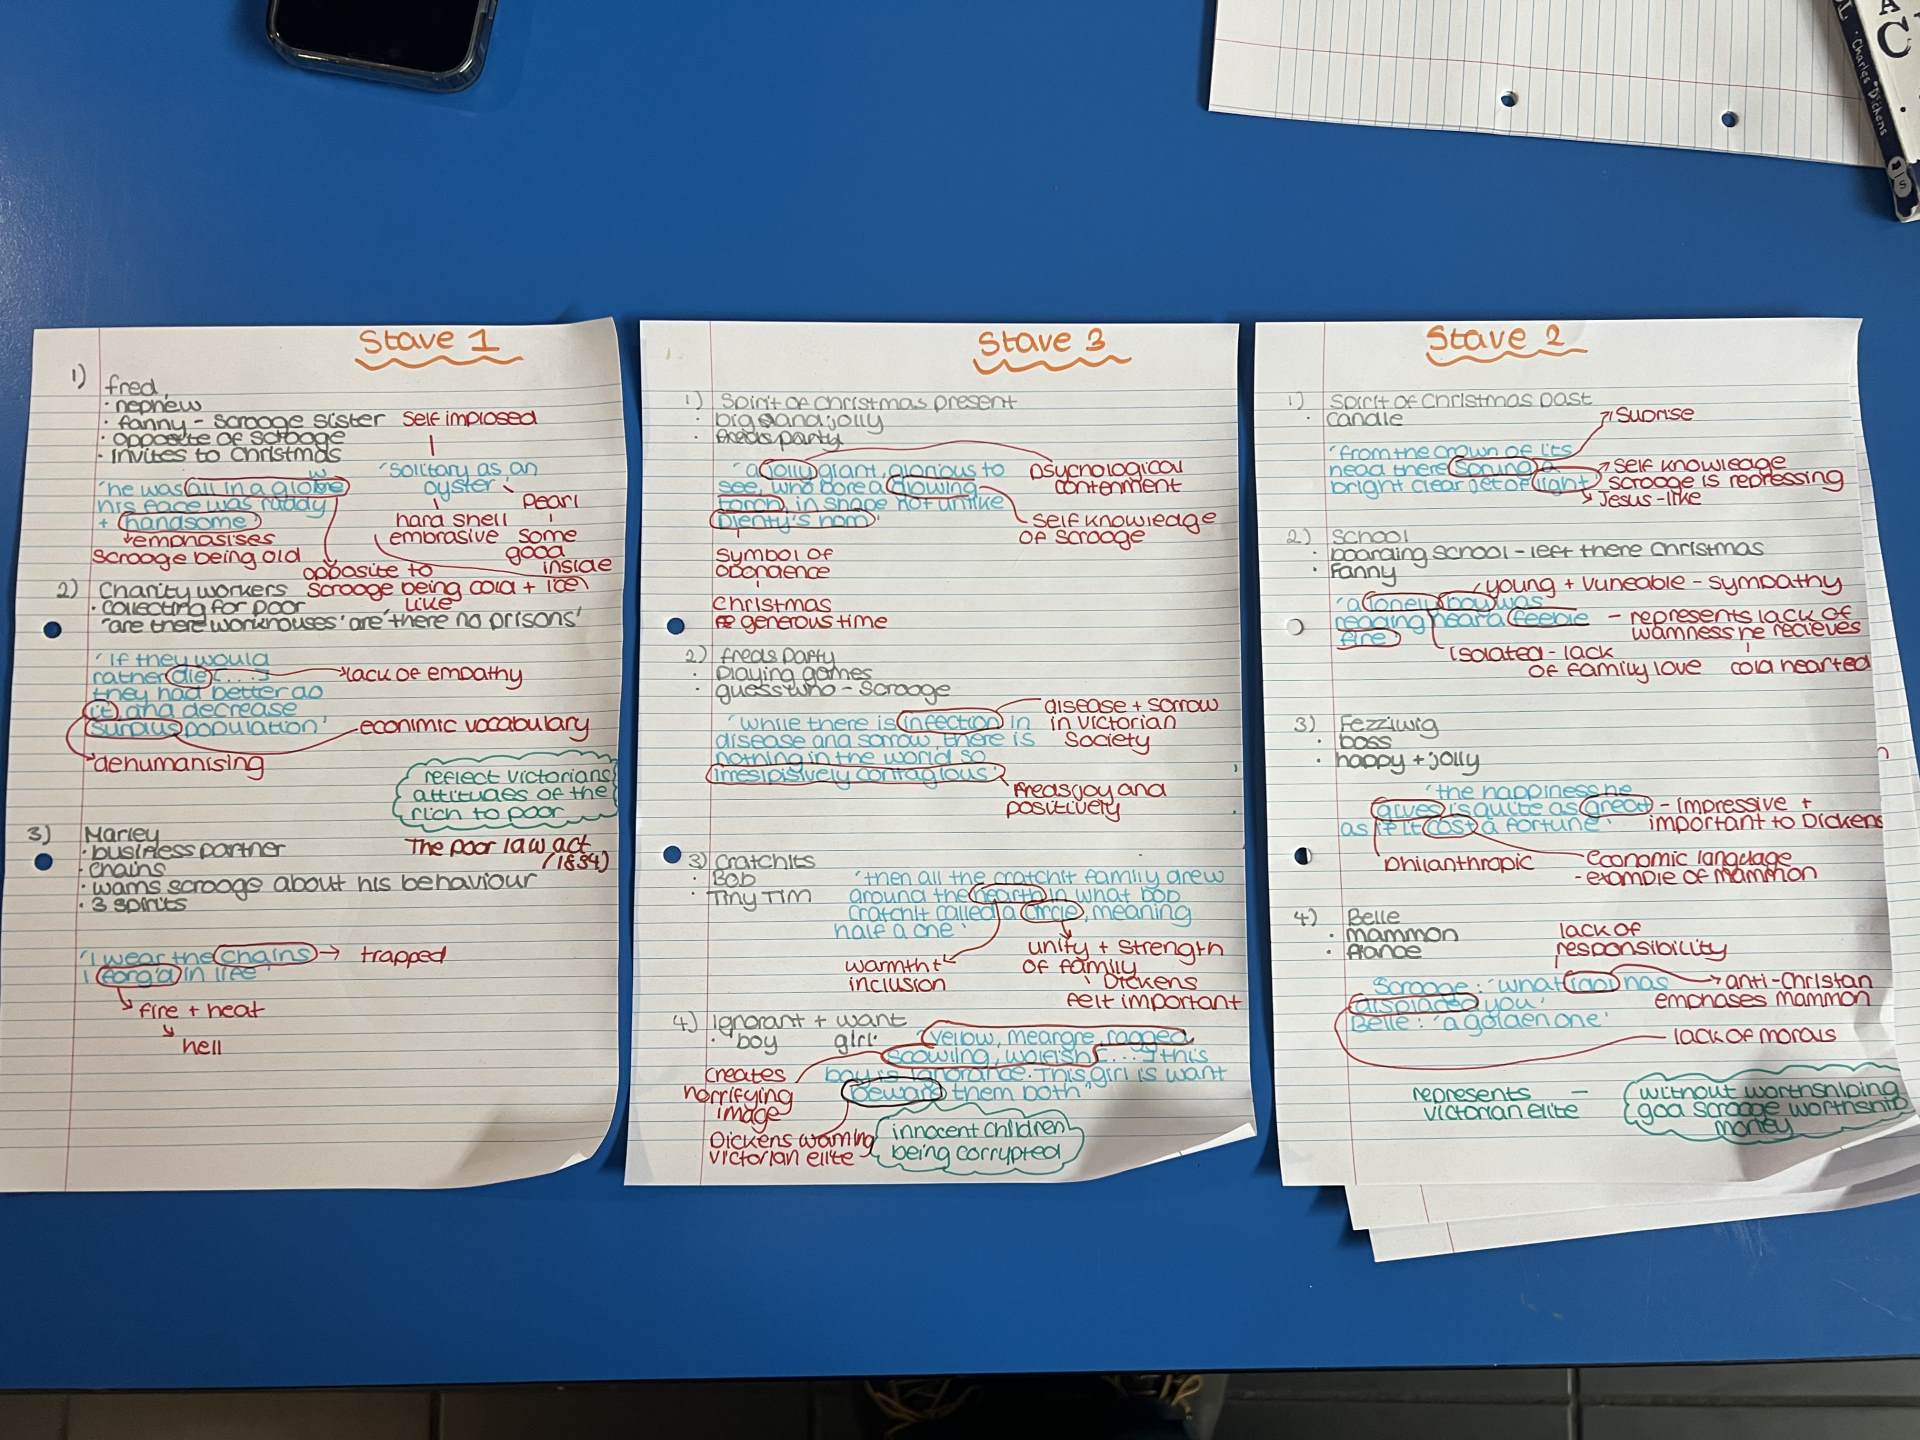 Stave 1
1) fred
· nephew
· fanny - scrooge sister
· opposite of scrooge
· invites to christmas
self imposed
'solitary as an
oyster'
hard shell
embrasive
Pearl
some
good
inside
'he was all in a glow
his face was ruddy
+ handsome'
emphasises
scrooge being old
opposite to
scrooge being cold + ice
like
2) Charity workers
· collecting for poor
'are there workhouses' are 'there no prisons'
'If they would
rather die [....]
they had better do
it, and decrease
surplus population'
lack of empathy
econimic vocabulary
dehumanising
reflect victorians
attitudes of the
rich to poor
The poor law act
(1834)
3) Marley
· business partner
· chains
· warns scrooge about his behaviour
· 3 spirits
'I wear the chains
I forg'd in life'
trapped
fire + heat
hell
Stave 3
1) Spirit of Christmas present
· big and jolly
· freds party
'a jolly giant, glorious to
see, who bore a glowing
torch, in shape not unlike
Plenty's horn'
psychological
contenment
self knowledge
of scrooge
symbol of
abondence
christmas
generous time
2) freds party
· playing games
· guess who - scrooge
'while there is infection in
disease and sorrow, there is
nothing in the world so
irresipisively contagious'
disease + sorrow
in victorian
society
freds joy and
positively
3) cratchits
· Bob
· Tiny Tim
'then all the cratchit family drew
around the hearth in what bob
cratchit called a circle, meaning
half a one'
warmtht
inclusion
unity + strength
of family
Dickens
felt important
4) Ignorant + want
· boy girl·
'yellow, meargre, ragged
scowling, wolfish [....] this
boy is ignorance. This girl is want
beware them both'
creates
horrifying
image
Dickens warning
victorian elite
innocent children
being corrupted
Stave 2
1) Spirit of Christmas past
· candle
'from the crown of its
head there sprung a
bright clear jet of light'
suprise
self knowledge
scrooge is repressing
Jesus-like
2) School
· boarding school - left there christmas
· Fanny
young + vuneable - sympathy
'a lonely boy was
reading near a feeble
fire'
- represents lack of
wamness he recieves
cold hearted
isolated - lack
of family love
3) Fezziwig
· boss
· happy + jolly
'the happiness he
gives is quite as great
as if it cost a fortune'
- impressive +
important to Dickens
philanthropic
economic language
- example of mammon
4) Belle
· mammon
· fiance
lack of
responsibility
Scrooge: 'what idol has
displaced you'
Belle: 'a golden one'
anti-Christan
emphases mammon
lack of morals
represents -
victorian elite
without worthshiping
god scrooge worthship
money
Charles Dickens